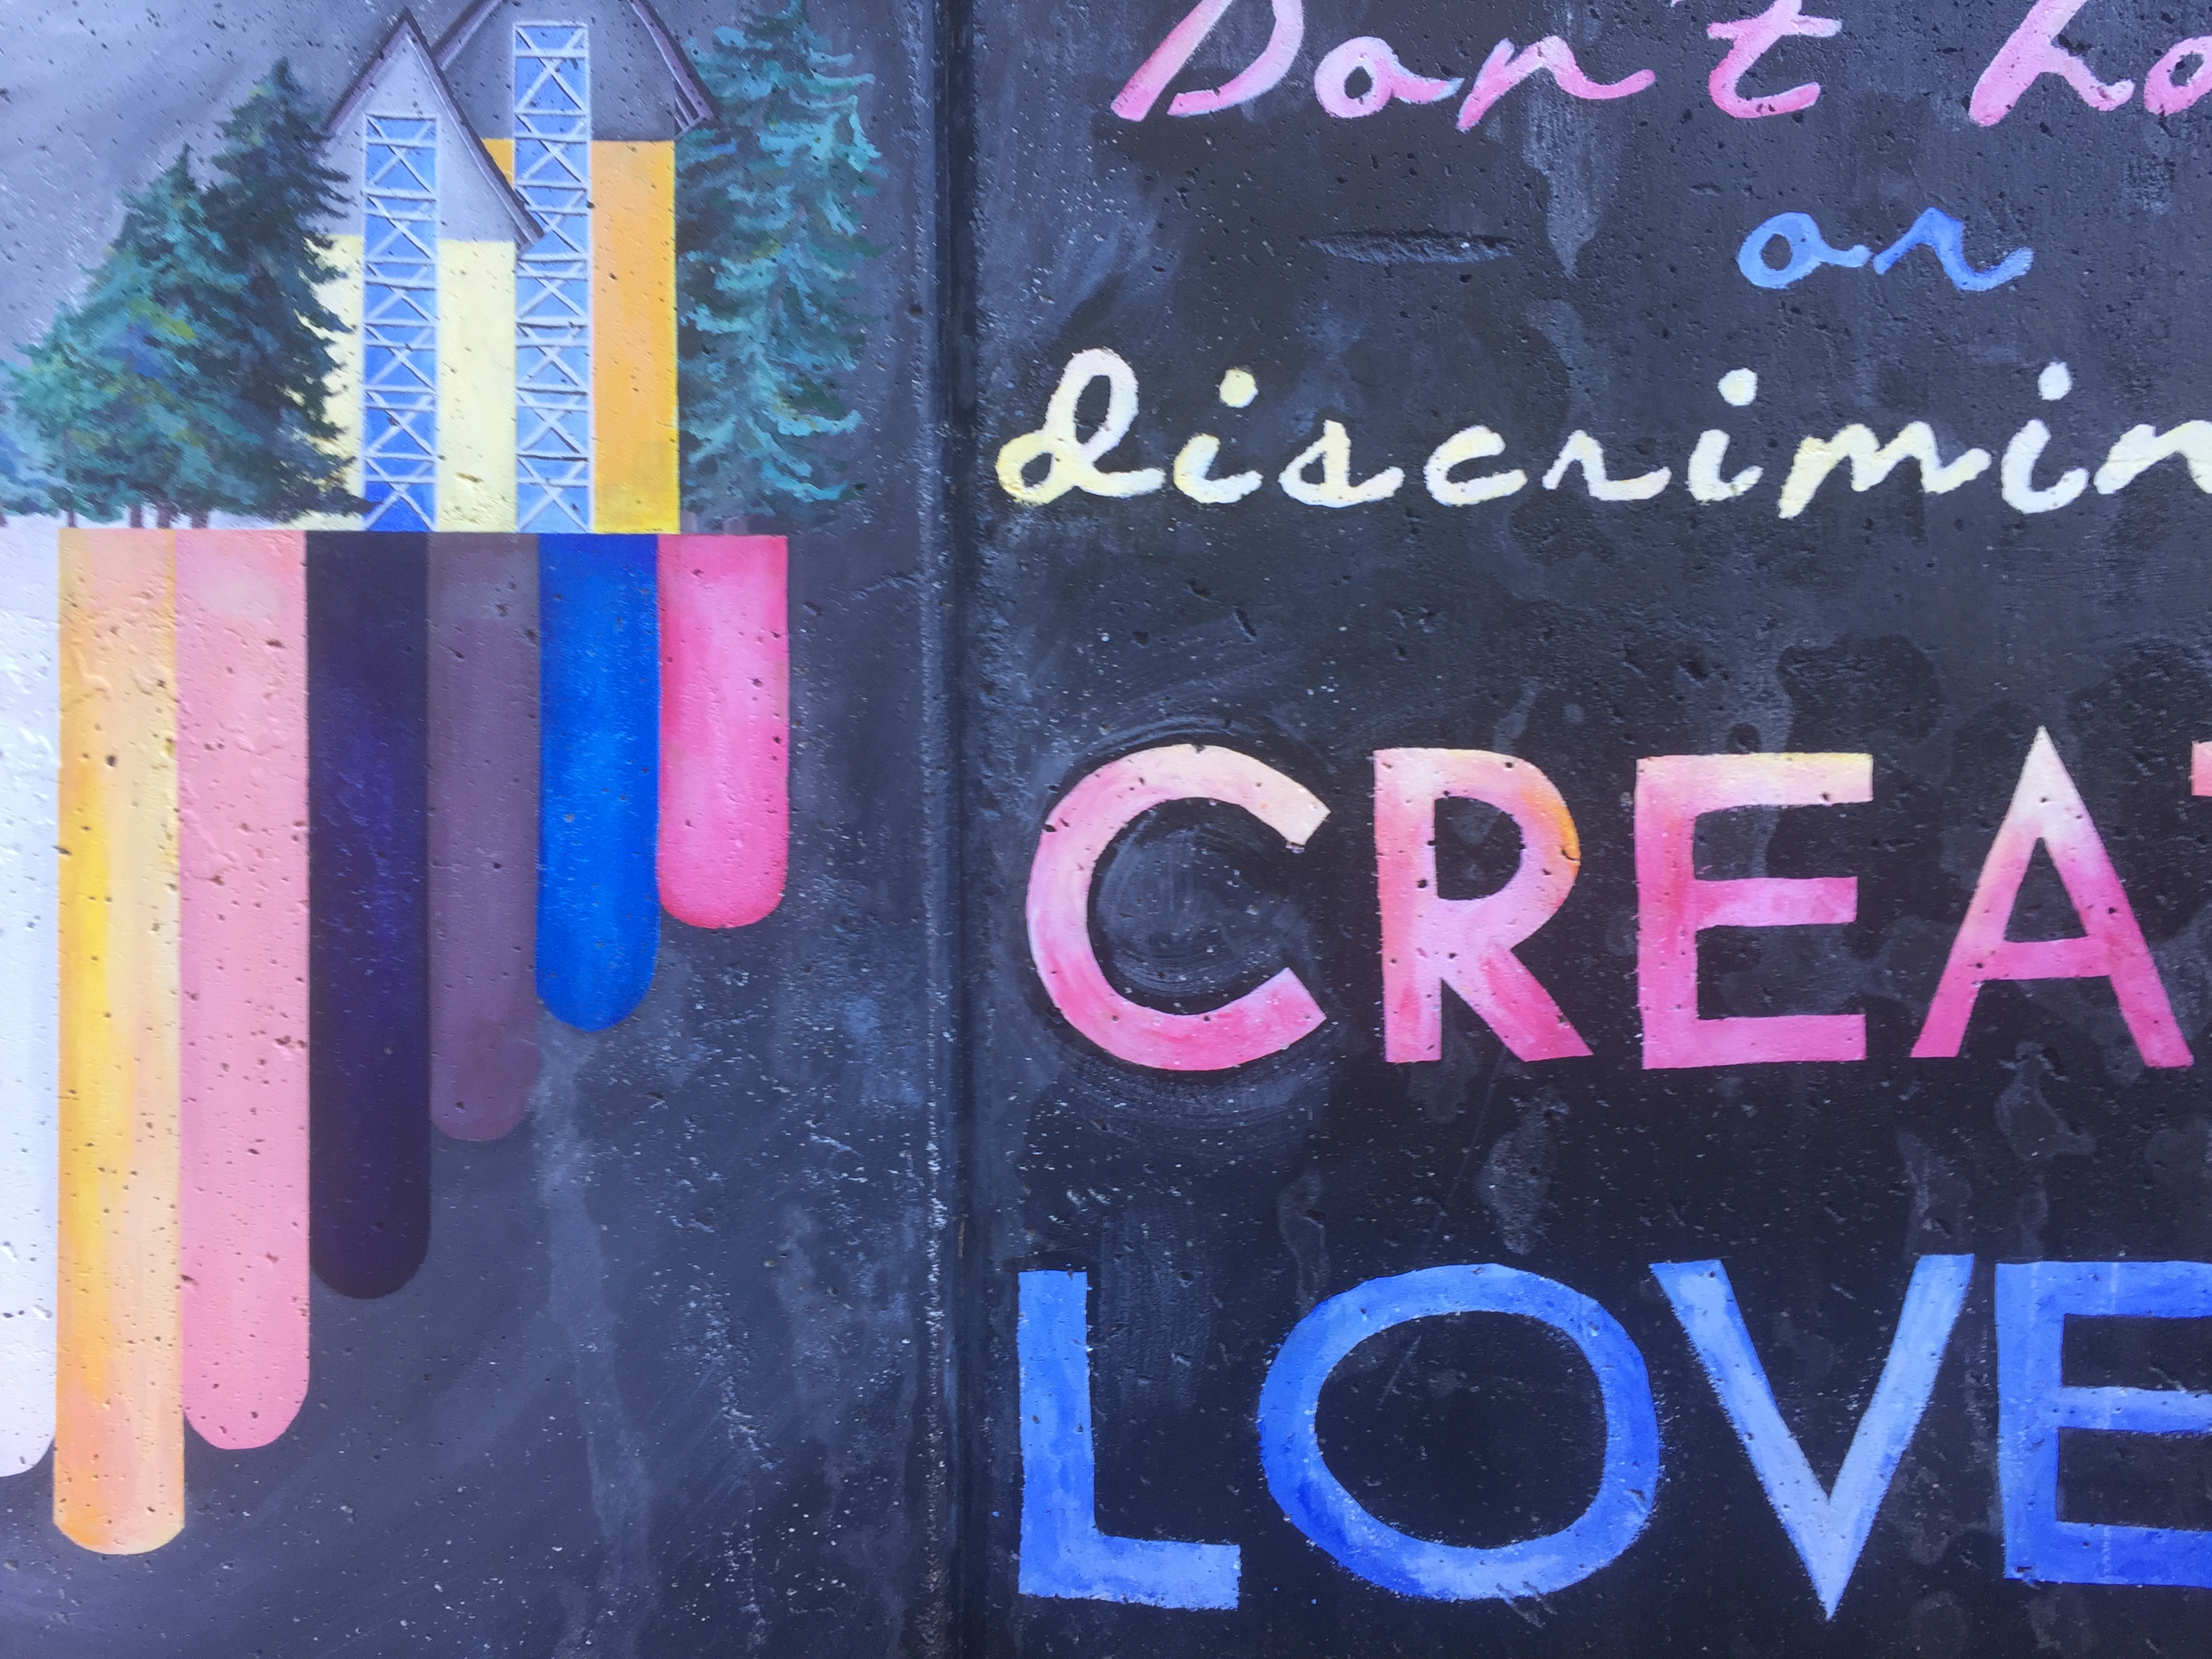 Don't
or
discrimin
CREAT
LOVE